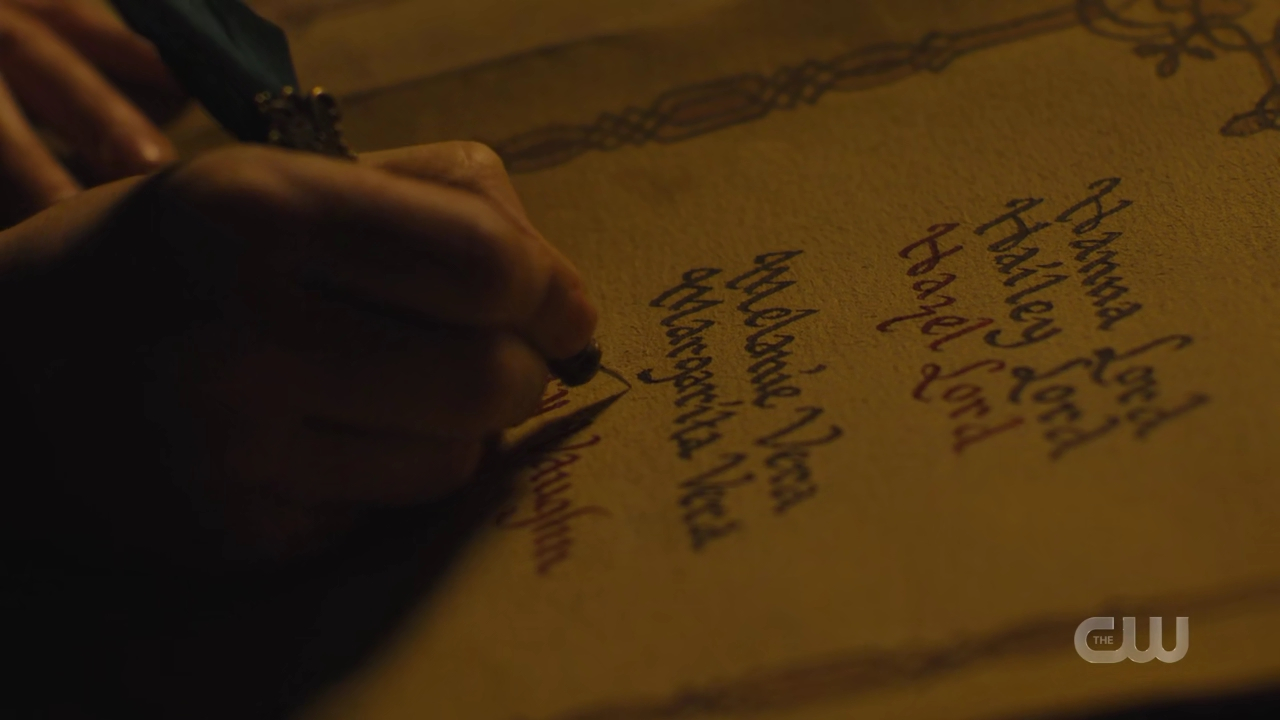 Hanna Lord
Hailey Lord
Hazel Lord
Mélanie Vera
Margarita Vera
Vaughn
THE CW